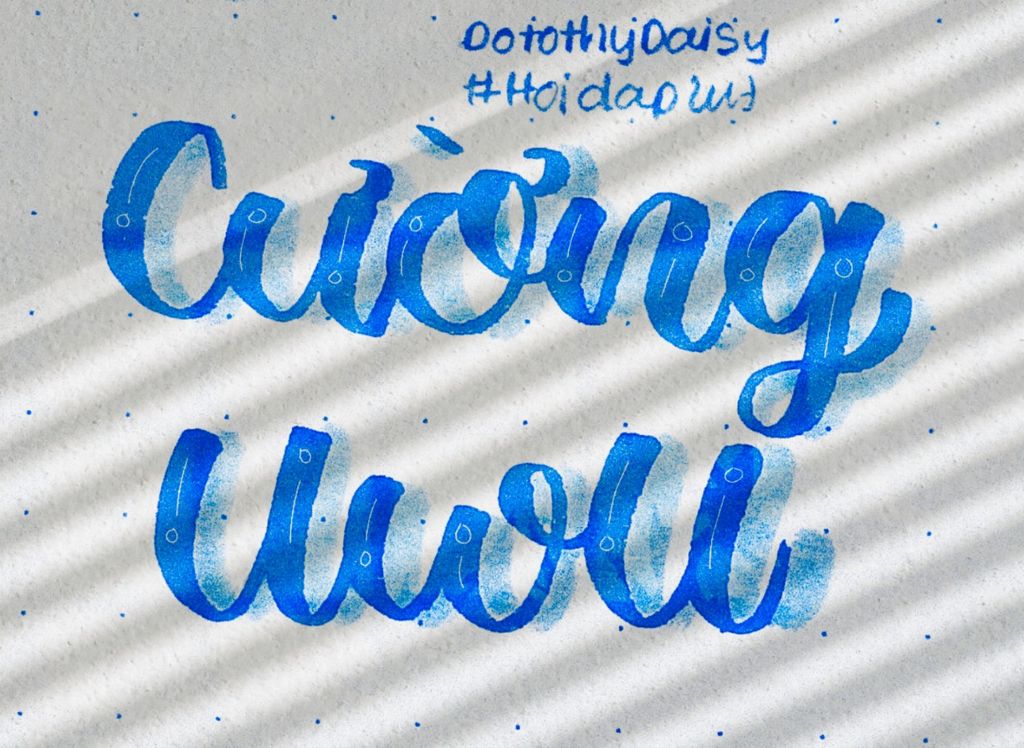 DotothyDaisy
#Hoidap247
Cường
UwU